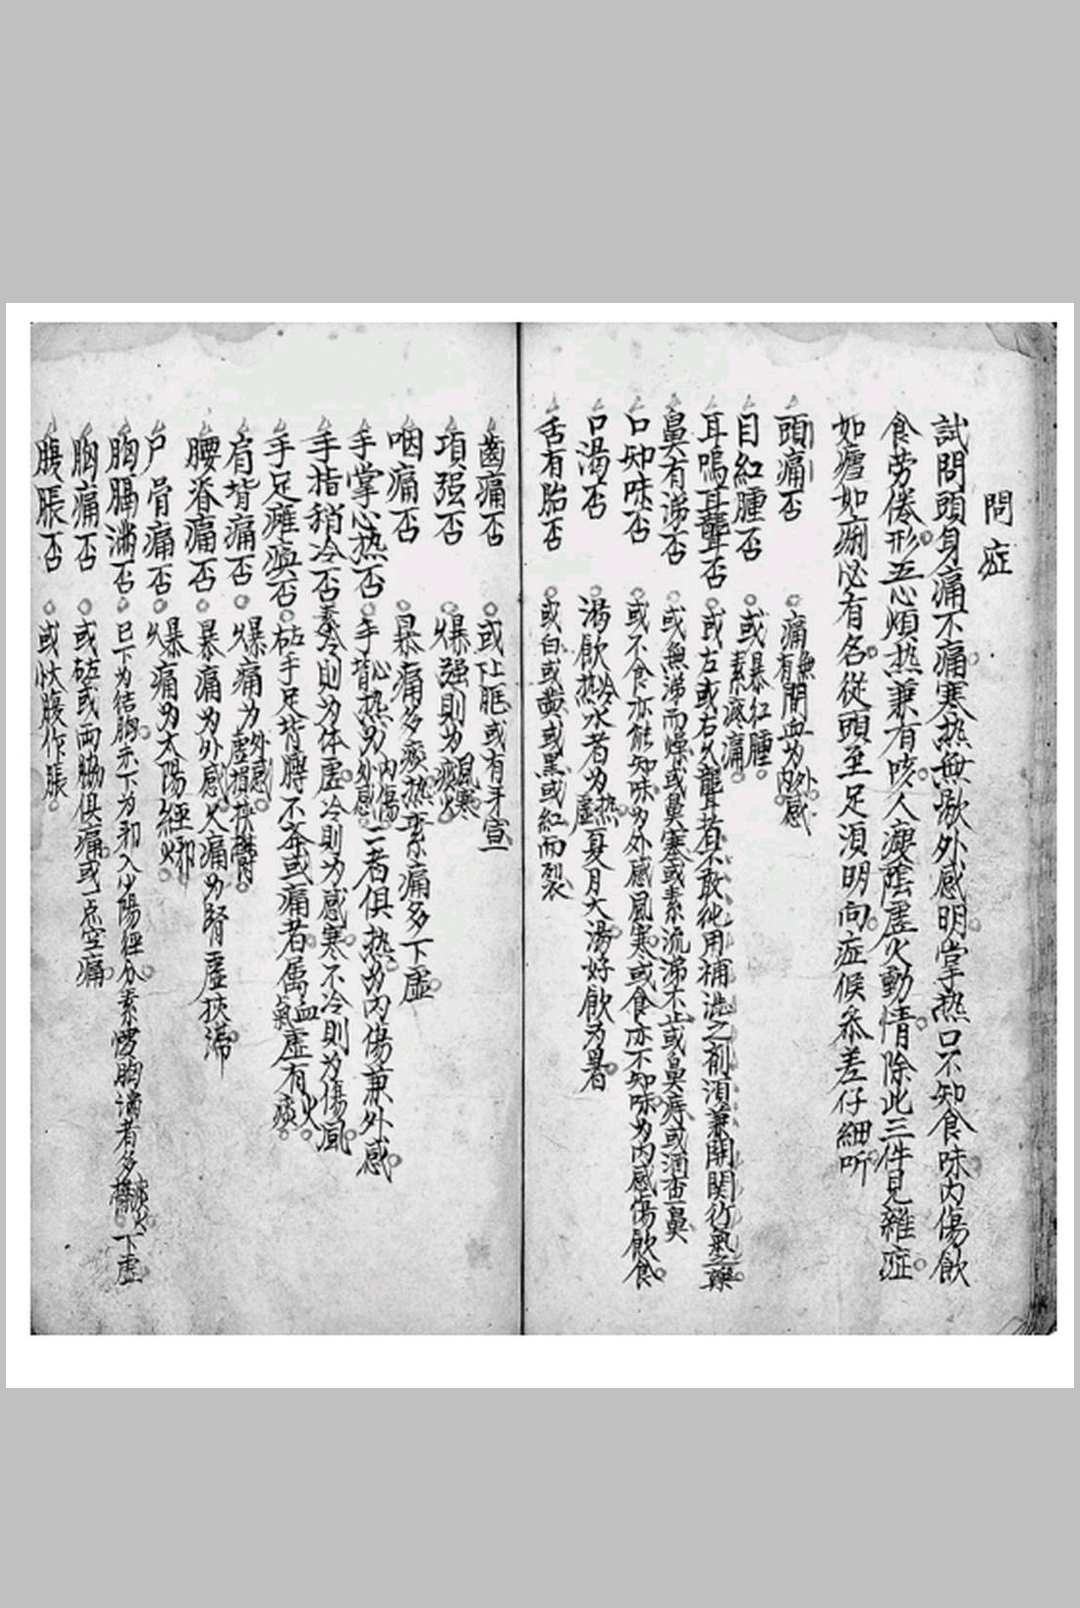 問症
試問頭身痛不痛寒热無歇外感明掌热口不知食味内傷飲
食劳倦形五心煩热兼有咳人瘦陰虛火動情除此三件見雜症
如瘧如痢必有名從頭至足須明向症候叅差仔細听
頭痛否 痛無間血为外感 有 内
目紅腫否 或暴紅腫 素疼痛
耳鳴耳聾否 或左或右久聾者不敢純用補澁之剤須兼開関行氣之藥
鼻有涕否 或無涕而燥或鼻塞或素流涕不止或鼻痔或酒查鼻
口知味否 或不食亦能知味为外感風寒或食亦不知味为内感傷飲食
口渴否 渴飲冷水者为热 热 虛 夏月大渴好飲为暑
舌有胎否 或白或黄或黑或紅而裂
齒痛否 或上 或有牙宣
項强否 爆强則为風寒 痰火
咽痛否 暴痛多痰热素痛多下虛
手掌心热否 手心热为内傷 背 外感 二者俱热为内傷兼外感
手指稍冷否 素冷則为体虛冷則为感寒不冷則为傷風
手足癱痪否 左手足 不 或痛者属血虛有火 氣 痰
肩背痛否 爆痛为外感 虛損挾
腰脊痛否 暴痛为外感久痛为腎虛挾滞
尸骨痛否 爆痛为太陽經邪 火
胸膈满否 已下为結胸未下为邪入少陽經分素 胸满者多痰火 下虛
胸痛否 或左或両脇俱痛或一点空痛
腹脹否 或大腹作脹